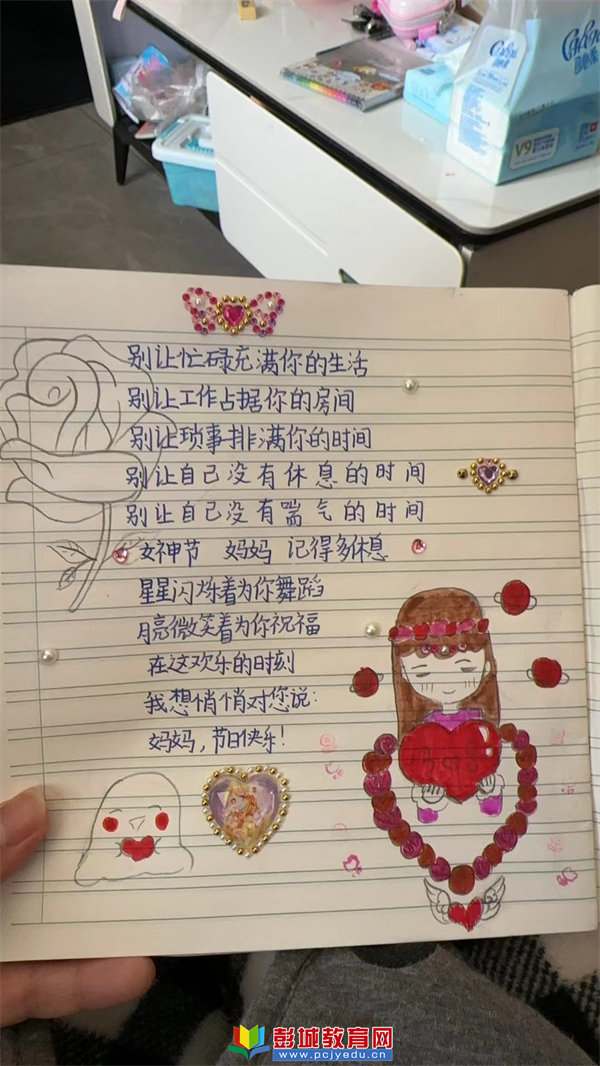 V9
别让忙碌充满你的生活
别让工作占据你的房间
别让琐事排满你的时间
别让自己没有休息的时间
别让自己没有喘气的时间
女神节 妈妈 记得多休息
星星闪烁着为你舞蹈
月亮微笑着为你祝福
在这欢乐的时刻
我想悄悄对您说:
妈妈,节日快乐!
彭城教育网
www.pcjyedu.cn